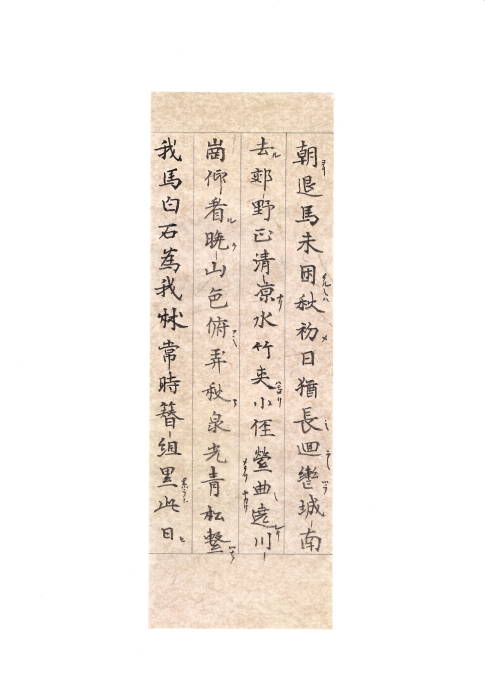 朝退馬未困秋初日猶長迴轡城南
去郊野正清凉水竹夾小俓縈曲遶川
崗仰看晚山色俯弄秋泉光青松繫
我馬白石為我牀常時簪組累此日